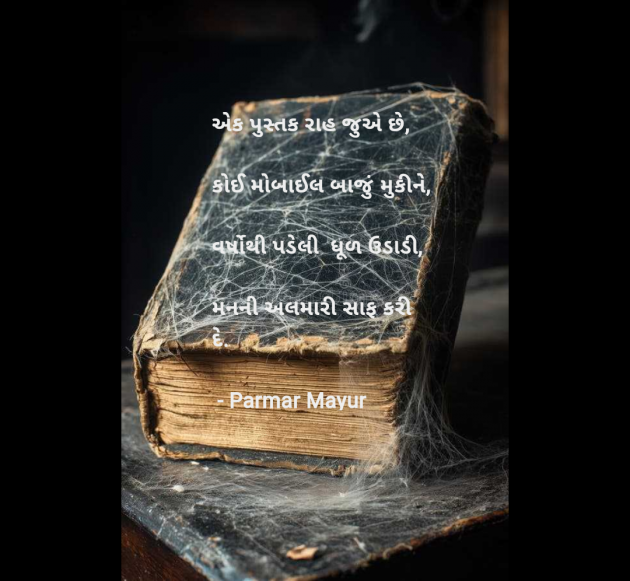 એક પુસ્તક રાહ જુએ છે,
કોઈ મોબાઈલ બાજું મુકીને,
વર્ષોથી પડેલી ધૂળ ઉડાડી,
મનની અલમારી સાફ કરી
દે.
- Parmar Mayur